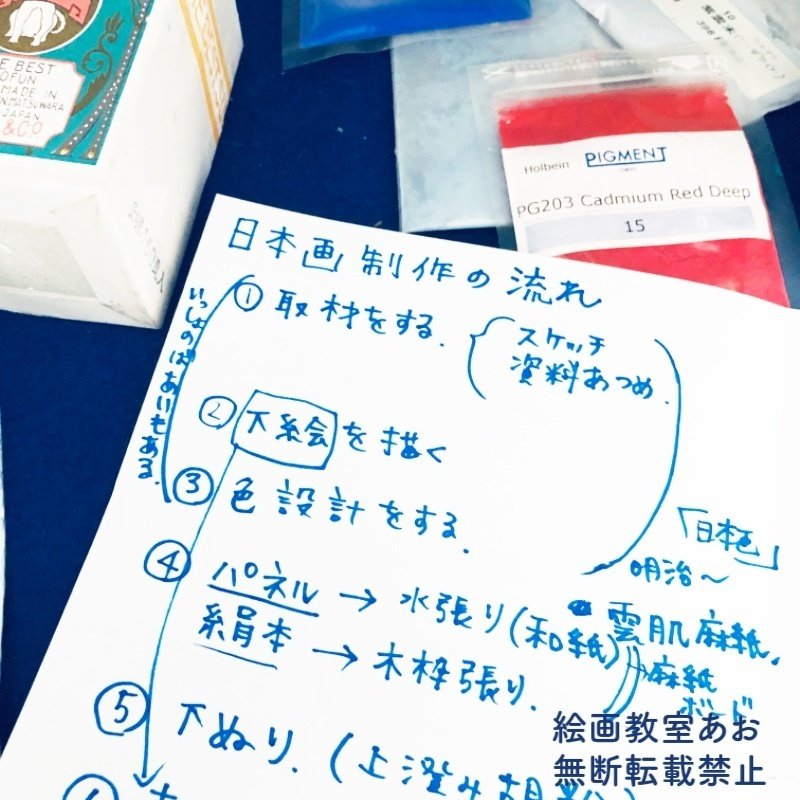 THE BEST
GOFUN
MADE IN
N.MATSUWARA
JAPAN
& CO.
10
Holbein
PIGMENT
TOKYO
PG203 Cadmium Red Deep
15
日本画制作の流れ
① 取材をする.
スケッチ
資料あつめ.
いっしょのばあいもある.
② 下絵を描く
③ 色設計をする.
「日本色」
明治〜
④ パネル → 水張り(和紙) 雲肌麻紙.
絹本 → 木枠張り.
麻紙
ボード
⑤ 下ぬり. (上澄み胡粉)
絵画教室あお
無断転載禁止